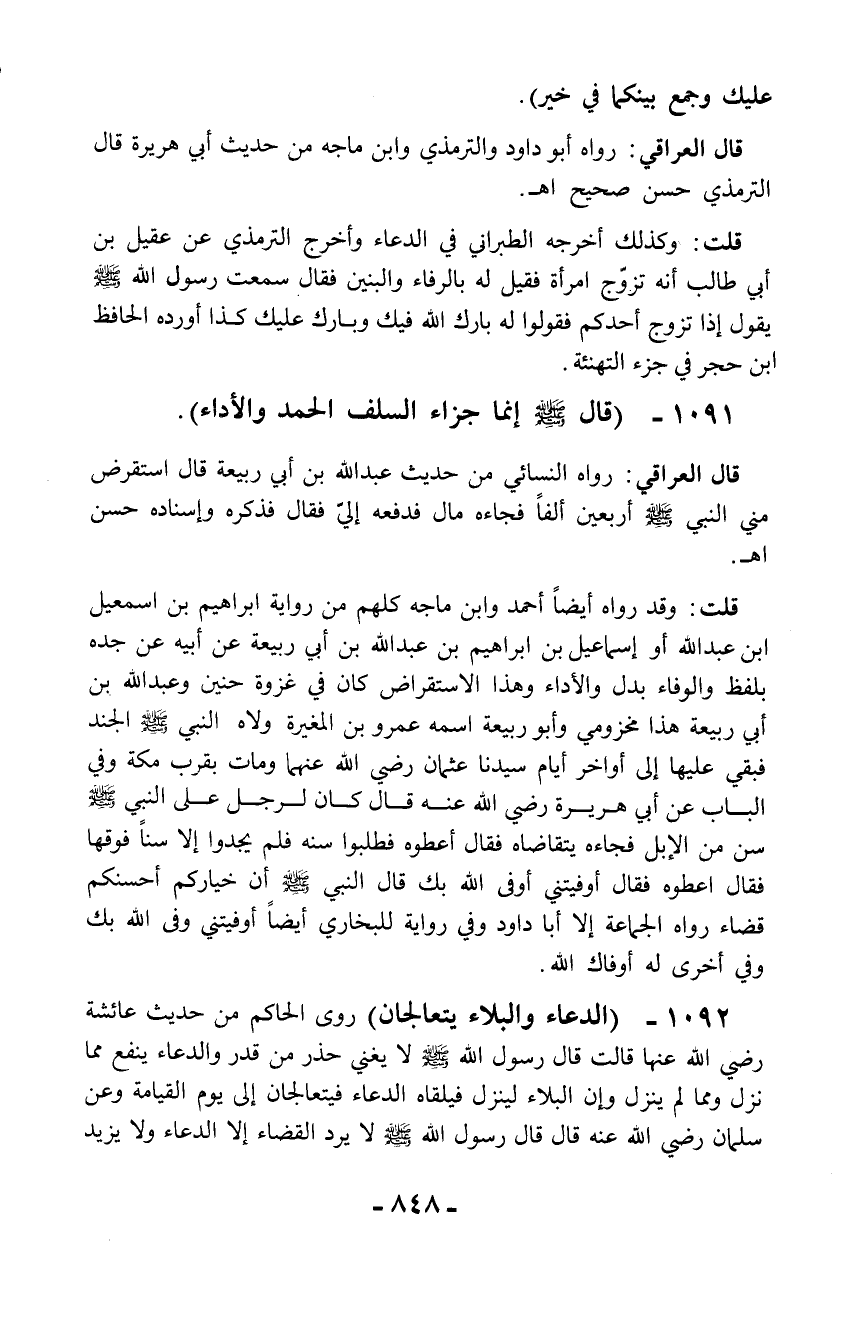 عليك وجمع بينكما في خير).
قال العراقي: رواه أبو داود والترمذي وابن ماجه من حديث أبي هريرة قال
الترمذي حسن صحيح اهـ.
قلت: وكذلك أخرجه الطبراني في الدعاء وأخرج الترمذي عن عقيل بن
أبي طالب أنه تزوّج امرأة فقيل له بالرفاء والبنين فقال سمعت رسول الله ﷺ
يقول إذا تزوج أحدكم فقولوا له بارك الله فيك وبارك عليك كذا أورده الحافظ
ابن حجر في جزء التهنئة.
١٠٩١ - (قال ﷺ إنما جزاء السلف الحمد والأداء).
قال العراقي: رواه النسائي من حديث عبدالله بن أبي ربيعة قال استقرض
مني النبي ﷺ أربعين ألفاً فجاءه مال فدفعه إليّ فقال فذكره وإسناده حسن
اهـ.
قلت: وقد رواه أيضاً أحمد وابن ماجه كلهم من رواية ابراهيم بن اسمعيل
ابن عبدالله أو إسماعيل بن ابراهيم بن عبدالله بن أبي ربيعة عن أبيه عن جده
بلفظ والوفاء بدل والأداء وهذا الاستقراض كان في غزوة حنين وعبدالله بن
أبي ربيعة هذا مخزومي وأبو ربيعة اسمه عمرو بن المغيرة ولاه النبي ﷺ الجند
فبقي عليها إلى أواخر أيام سيدنا عثمان رضي الله عنهما ومات بقرب مكة وفي
الباب عن أبي هريرة رضي الله عنه قال كان لرجل على النبي ﷺ
سن من الإبل فجاءه يتقاضاه فقال أعطوه فطلبوا سنه فلم يجدوا إلا سناً فوقها
فقال اعطوه فقال أوفيتني أوفى الله بك قال النبي ﷺ أن خياركم أحسنكم
قضاء رواه الجماعة إلا أبا داود وفي رواية للبخاري أيضاً أوفيتني وفى الله بك
وفي أخرى له أوفاك الله.
١٠٩٢ - (الدعاء والبلاء يتعالجان) روى الحاكم من حديث عائشة
رضي الله عنها قالت قال رسول الله ﷺ لا يغني حذر من قدر والدعاء ينفع مما
نزل ومما لم ينزل وإن البلاء لينزل فيلقاه الدعاء فيتعالجان إلى يوم القيامة وعن
سلمان رضي الله عنه قال قال رسول الله ﷺ لا يرد القضاء إلا الدعاء ولا يزيد
- ٨٤٨ -